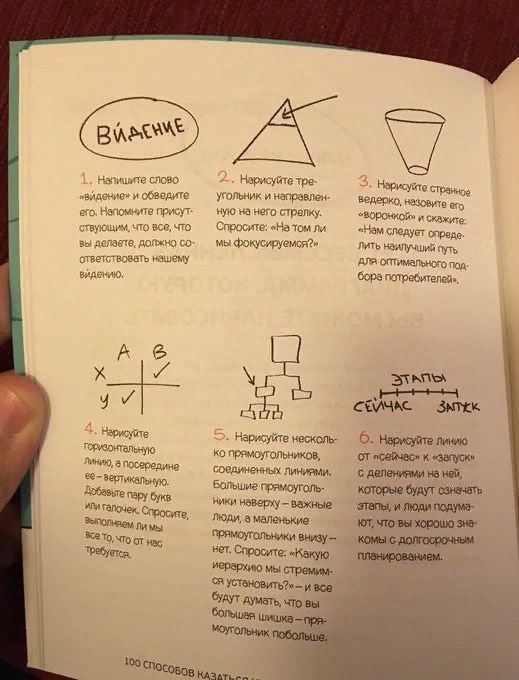 ВИ́ДЕНИЕ
1. Напишите слово
«ви́дение» и обведите
его. Напомните присут-
ствующим, что все, что
вы делаете, должно со-
ответствовать нашему
ви́дению.
2. Нарисуйте тре-
угольник и направлен-
ную на него стрелку.
Спросите: «На том ли
мы фокусируемся?»
3. Нарисуйте странное
ведерко, назовите его
«воронкой» и скажите:
«Нам следует опреде-
лить наилучший путь
для оптимального под-
бора потребителей».
А В
Х
У
4. Нарисуйте
горизонтальную
линию, а посередине
ее – вертикальную.
Добавьте пару букв
или галочек. Спросите,
выполняем ли мы
все то, что от нас
требуется.
5. Нарисуйте несколь-
ко прямоугольников,
соединенных линиями.
Большие прямоуголь-
ники наверху – важные
люди, а маленькие
прямоугольники внизу –
нет. Спросите: «Какую
иерархию мы стремим-
ся установить?» – и все
будут думать, что вы
большая шишка – пря-
моугольник побольше.
ЭТАПЫ
СЕЙЧАС ЗАПУСК
6. Нарисуйте линию
от «сейчас» к «запуск»
с делениями на ней,
которые будут означать
этапы, и люди подума-
ют, что вы хорошо зна-
комы с долгосрочным
планированием.
100 СПОСОБОВ КАЗАТЬСЯ